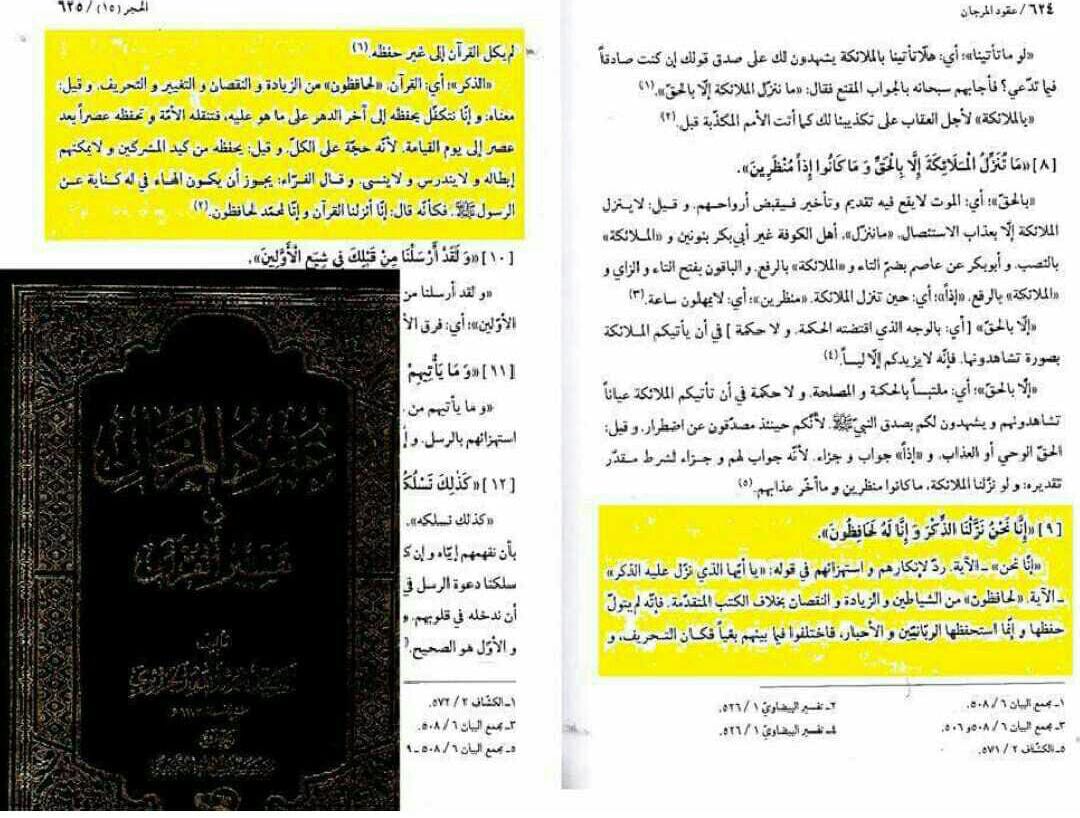 ٦٢٤ / عقود المرجان
«لو ما تأتينا»؛ أي: هلّا تأتينا بالملائكة يشهدون لك على صدق قولك إن كنت صادقاً
فيما تدّعي؟ فأجابهم سبحانه بالجواب المقنع فقال: «ما ننزّل الملائكة إلّا بالحقّ».(١)
«بالملائكة» لأجل العقاب على تكذيبنا لك كما أتت الأمم المكذّبة قبل.(٢)
[٨] «مَا نُنَزِّلُ الْمَلَائِكَةَ إِلَّا بِالْحَقِّ وَ مَا كَانُوا إِذاً مُنْظَرِينَ».
«بالحقّ»؛ أي: الموت لا يقع فيه تقديم وتأخير فيقبض أرواحهم. و قيل: لا ينزل
الملائكة إلّا بعذاب الاستئصال. «ماننزّل». أهل الكوفة غير أبي‌بكر بنونين و «الملائكة»
بالنصب. و أبوبكر عن عاصم بضمّ التاء و «الملائكة» بالرفع. و الباقون بفتح التاء و الزاي و
«الملائكة» بالرفع. «إذاً»؛ أي: حين تنزل الملائكة. «منظرين»؛ أي: لايمهلون ساعة.(٣)
«إلّا بالحقّ» [أي: بالوجه الذي اقتضته الحكمة. و لا حكمة ] في أن يأتيكم الملائكة
بصورة تشاهدونها. فإنّه لا يزيدكم إلّا لبساً.(٤)
«إلّا بالحقّ»؛ أي: ملتبساً بالحكمة و المصلحة. و لا حكمة في أن تأتيكم الملائكة عياناً
تشاهدونهم و يشهدون لكم بصدق النبيّ ﷺ. لأنّكم حينئذ مصدّقون عن اضطرار. و قيل:
الحقّ الوحي أو العذاب. و «إذاً» جواب و جزاء. لأنّه جواب لهم و جزاء لشرط مقدّر
تقديره: و لو نزّلنا الملائكة، ماكانوا منظرين و ماأخّر عذابهم.(٥)
[٩] «إِنَّا نَحْنُ نَزَّلْنَا الذِّكْرَ وَ إِنَّا لَهُ لَحَافِظُونَ».
«إنّا نحن» ـ الآية. ردّ لإنكارهم و استهزائهم في قوله: «يا أيّها الذي نزّل عليه الذكر»
ـ الآية. «لحافظون» من الشياطين و الزيادة و النقصان بخلاف الكتب المتقدّمة. فإنّه لم يتولّ
حفظها و إنّما استحفظها الربّانيّين و الأحبار، فاختلفوا فيما بينهم بغياً فكان التحريف، و
١ـ مجمع البيان ٦ / ٥٠٨.
٢ـ تفسير البيضاويّ ١ / ٥٢٦.
٣ـ مجمع البيان ٦ / ٥٠٨ و ٥٠٦.
٤ـ تفسير البيضاويّ ١ / ٥٢٦.
٥ـ الكشّاف ٢ / ٥٧١.
الحجر (١٥) / ٦٢٥
لم يكل القرآن إلى غير حفظه.(٦)
«الذكر»؛ أي: القرآن. «لحافظون» من الزيادة و النقصان و التغيير و التحريف. و قيل:
معناه: و إنّا نتكفّل بحفظه إلى آخر الدهر على ما هو عليه، فتنقله الأمّة و تحفظه عصراً بعد
عصر إلى يوم القيامة. لأنّه حجّة على الكلّ. و قيل: يحفظه من كيد المشركين و لايمكنهم
إبطاله و لايندرس و لاينسى. و قال الفرّاء: يجوز أن يكون الهاء في له كناية عن
الرسول ﷺ. فكأنّه قال: إنّا أنزلنا القرآن و إنّا لمحمّد لحافظون.(٢)
[١٠] «وَ لَقَدْ أَرْسَلْنَا مِنْ قَبْلِكَ فِي شِيَعِ الْأَوَّلِينَ».
«و لقد أرسلنا من
الأوّلين»؛ أي: فرق الأ
[١١] «وَ مَا يَأْتِيهِمْ
«و ما يأتيهم من
استهزائهم بالرسل. و
[١٢] «كَذَٰلِكَ نَسْلُكُ
«كذلك نسلكه».
بأن نفهمهم إيّاه و إن ك
سلكنا دعوة الرسل في
أن ندخله في قلوبهم. و
و الأوّل هو الصحيح.
١ـ الكشّاف ٢ / ٥٧٢.
٣ـ مجمع البيان ٦ / ٥٠٨.
٥ـ مجمع البيان ٦ / ٥٠٨ ـ ٩
عقود المرجان
في
تفسير القرآن
تأليف